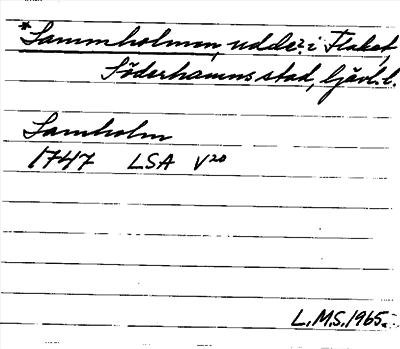 *Sammholmen, udde? i Flaket,
Söderhamns stad, Gävl. l.
Samholm
1747 LSA V20
L.M.S. 1965.